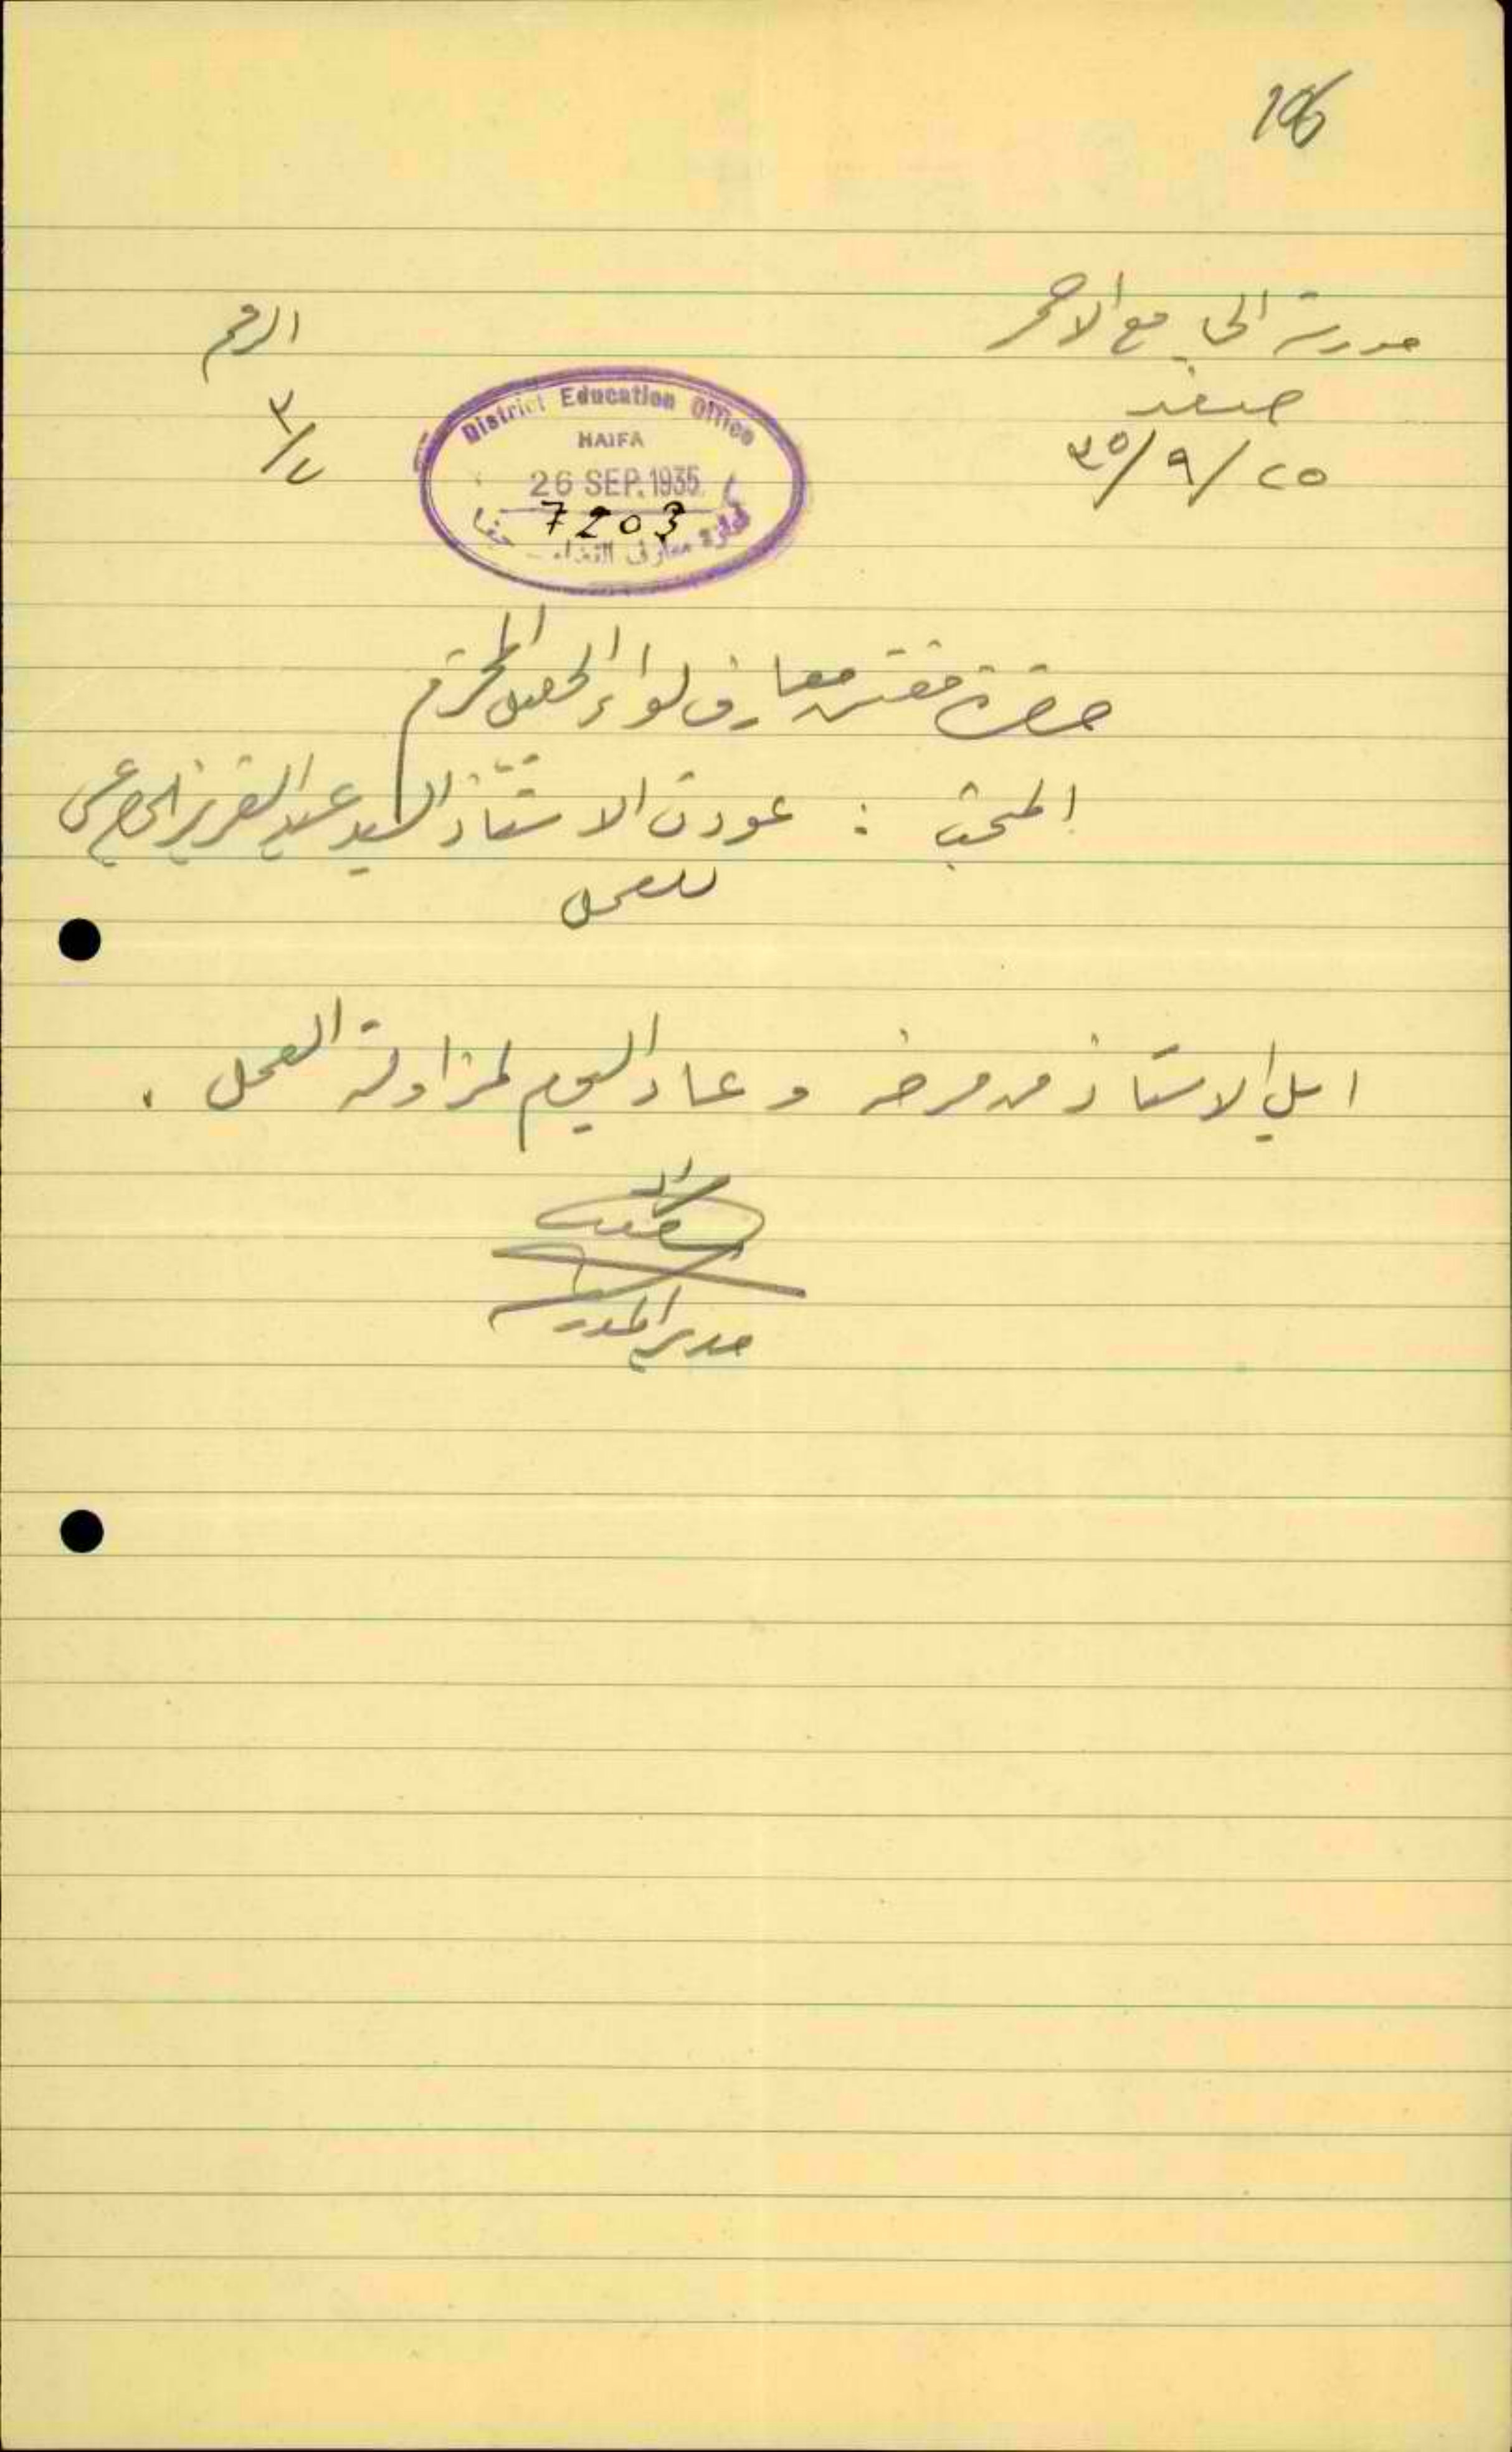 106
مدرسة الجامع الاحمر
صفد
٢٥/٩/٣٥
الرقم
٣/٧
District Education Office
HAIFA
26 SEP. 1935
7203
دائرة معارف القضاء - حيفا
حضرة مفتش معارف لواء الجليل المحترم
المبحث : عودة الاستاذ السيد عبد العزيز
للعمل
ابل الاستاذ من مرضه وعاد اليوم لمزاولة العمل .
مدير المدرسة